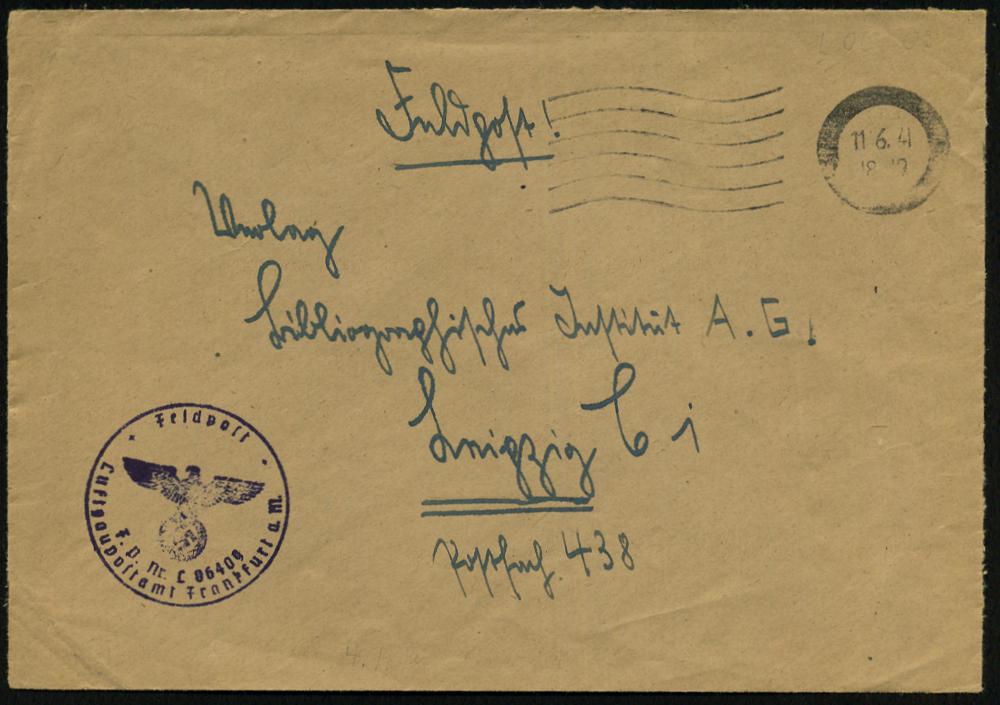 Feldpost!
11.6.41
Verlag
Bibliographisches Institut A.G.,
Leipzig C 1
Postfach 438
Feldpost
F.P. Nr. L 06409
Luftgaupostamt Frankfurt a. M.